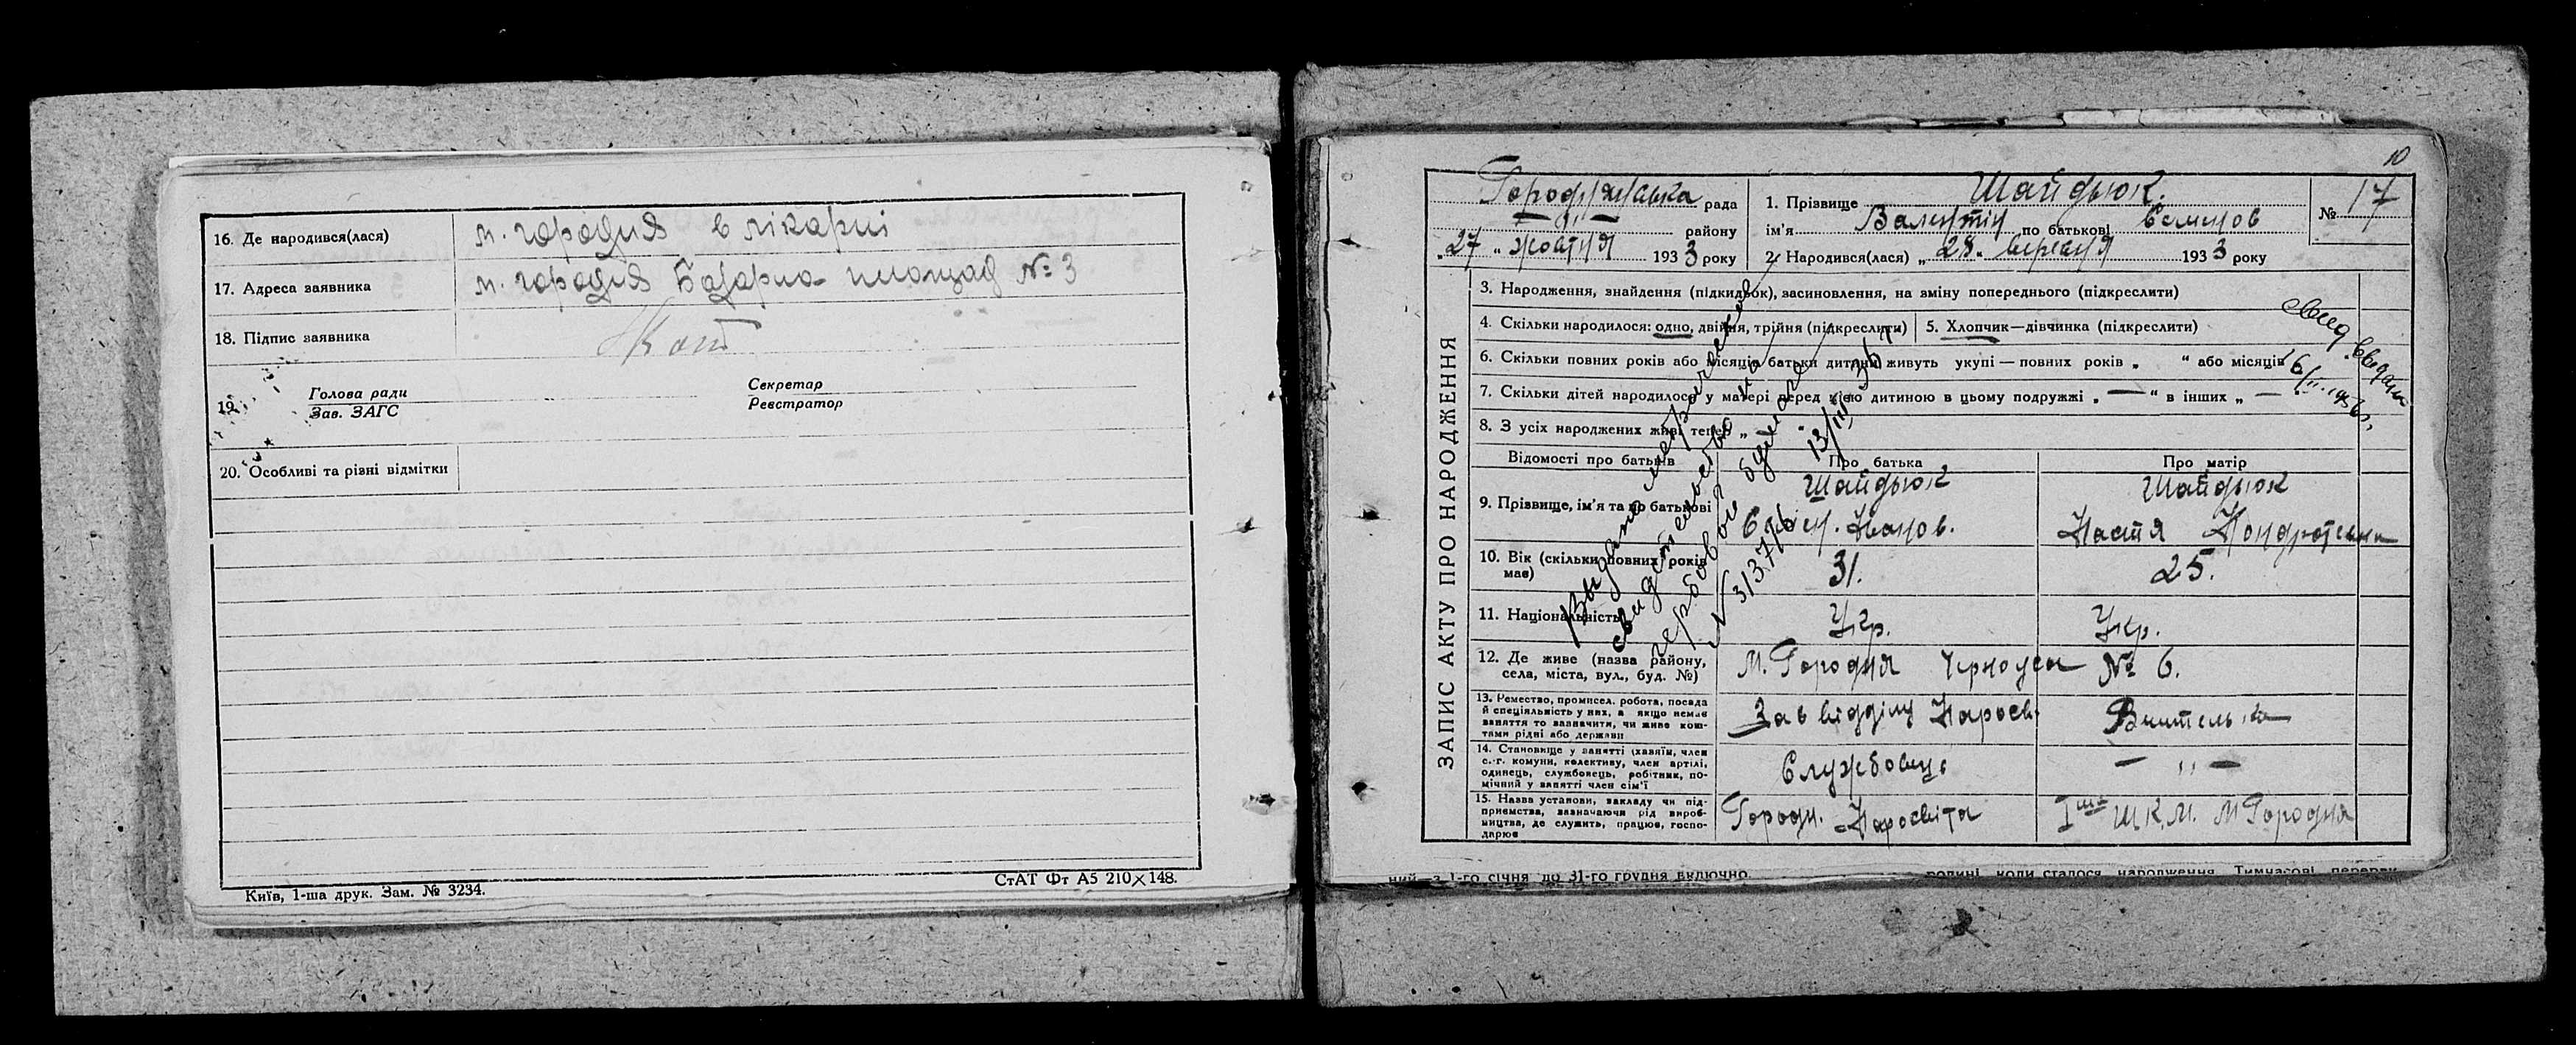 16. Де народився(лася) м. городня в лікарні
17. Адреса заявника м. городня Базарна площад № 3
18. Підпис заявника
19. Голова ради
Зав. ЗАГС
Секретар
Реєстратор
20. Особливі та різні відмітки
Київ, 1-ша друк. Зам. № 3234.
СтАТ Фт А5 210×148.
10
рада
— „ — району
„ 27 „ жовтня 1933 року
1. Прізвище Шайдюк.
ім'я Валентін по батькові
2. Народився(лася) „ 28 „ вересня 1933 року
№ 17
ЗАПИС АКТУ ПРО НАРОДЖЕННЯ
3. Народження, знайдення (підкидьок), засиновлення, на зміну попереднього (підкреслити)
4. Скільки народилося: одно, двійня, трійня (підкреслити)
5. Хлопчик—дівчинка (підкреслити)
6. Скільки повних років або місяців батьки дитини живуть укупі — повних років „ “ або місяців
7. Скільки дітей народилося у матері перед цією дитиною в цьому подружжі „ — “ в інших „ —
8. З усіх народжених живі тепер „
Відомості про батьків
Про батька
Про матір
9. Прізвище, ім'я та по батькові
Шайдюк
Іванов.
Шайдюк
Настя
10. Вік (скільки повних років має)
31.
25.
11. Національність
Укр.
Укр.
12. Де живе (назва району,
села, міста, вул., буд. №)
М. Городня № 6.
13. Ремество, промисел, робота, посада
й спеціяльність у них, а якщо немає
заняття то зазначити, чи живе кош-
тами рідні або держави
Зав відділу
Вчителька
14. Становище у занятті (хазяїн, член
с.-г. комуни, колективу, член артілі,
одинець, службовець, робітник, по-
мічний у занятті член сім'ї
Службовец
— „ —
15. Назва установи, закладу чи під-
приємства, зазначаючи рід вироб-
ництва, де служить, працює, госпо-
дарює
Городн. Наросвіта
Іша ШКМ. М Городня
Видано
свидетельство на
гербовой бумаге
13/III 36
ний з 1-го січня до 31-го грудня включно.
родині коли сталося народження Тимчасові перерви